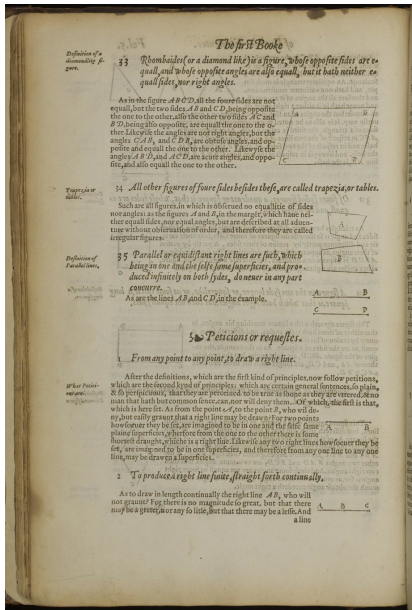 The first Booke
Definition of a
diamondlike fi-
gure.
33 Rhombaides (or a diamond like) is a figure, whose opposite sides are e-
quall, and whose opposite angles are also equall, but it hath neither e-
quall sides, nor right angles.
As in the figure ABCD, all the foure sides are not
equall, but the two sides AB and CD, being opposite
the one to the other, also the other two sides AC and
BD, being also opposite, are equall the one to the o-
ther. Likewise the angles are not right angles, but the
angles CAB, and CDB, are obtuse angles, and op-
posite and equall the one to the other. Likewise the
angles ABD, and ACD, are acute angles, and oppo-
site, and also equall the one to the other.
A B
C D
Trapezia or
tables.
34 All other figures of foure sides besides these, are called trapezia, or tables.
Such are all figures, in which is observed no equallitie of sides
nor angles: as the figures A and B, in the margēt, which haue nei-
ther equall sides, nor equal angles, but are described at all aduen-
ture without obseruation of order, and therefore they are called
irregular figures.
A
B
Definition of
Parallel lines.
35 Parallel or equidistant right lines are such, which
being in one and the selfe same superficies, and pro-
duced infinitely on both sydes, do neuer in any part
concurre.
As are the lines AB, and CD, in the example.
A B
C D
Peticions or requestes.
1 From any point to any point, to draw a right line.
What Petici-
ons are.
After the definitions, which are the first kind of principles, now follow petitions,
which are the second kynd of principles: which are certain general sentences, so plain,
& so perspicuous, that they are perceiued to be true as soone as they are vttered, & no
man that hath but common sence, can, nor will deny them. Of which, the first is that,
which is here set. As from the point A, to the point B, who will de-
ny, but easily graunt that a right line may be drawn? For two points
howsoeuer they be set, are imagined to be in one and the selfe same
plaine superficies, wherfore from the one to the other there is some
shortest draught, which is a right line. Likewise any two right lines howsoeuer they be
set, are imagined to be in one superficies, and therefore from any one line to any one
line, may be drawen a superficies.
A B
2 To produce a right line finite, straight forth continually.
As to draw in length continually the right line AB, who will
not graunt? For there is no magnitude so great, but that there
may be a greter, nor any so litle, but that there may be a lesse. And
A B C
a line